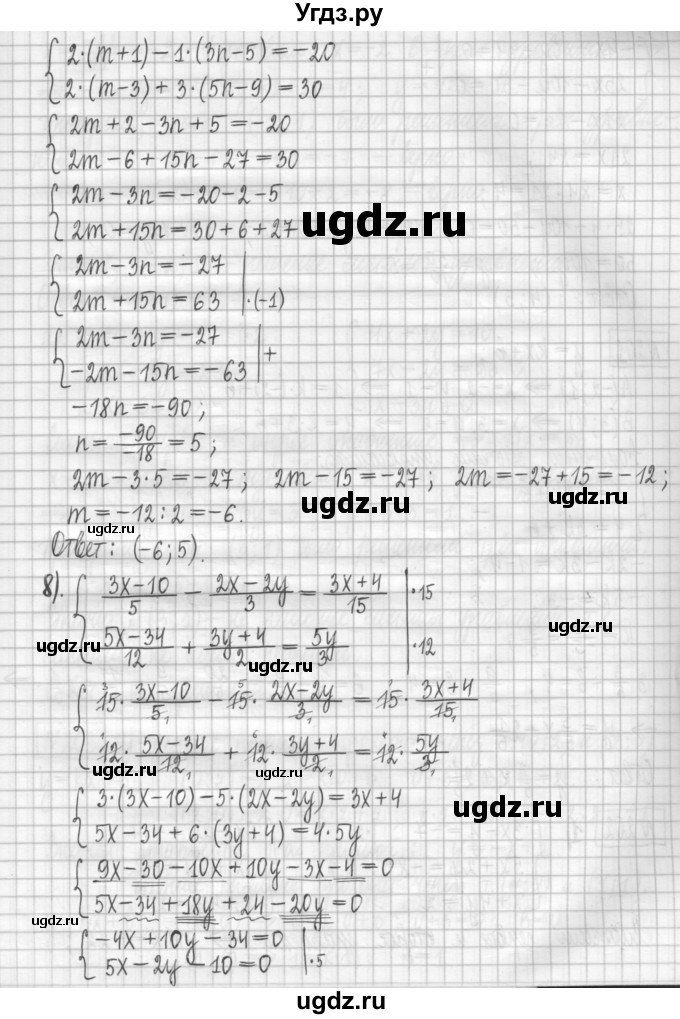 Угдз.ру
{ 2·(m+1)−1·(3n−5)=−20
2·(m−3)+3·(5n−9)=30
{ 2m+2−3n+5=−20
2m−6+15n−27=30
{ 2m−3n=−20−2−5
2m+15n=30+6+27
ugdz.ru
{ 2m−3n=−27
2m+15n=63 |·(−1)
{ 2m−3n=−27
−2m−15n=−63 | +
−18n=−90;
n=−90/−18=5;
2m−3·5=−27; 2m−15=−27; 2m=−27+15=−12;
ugdz.ru
ugdz.ru
m=−12:2=−6.
ugdz.ru
Ответ: (−6;5).
8). { (3x−10)/5 − (2x−2y)/3 = (3x+4)/15 |·15
(5x−34)/12 + (3y+4)/2 = 5y/3 |·12
ugdz.ru
ugdz.ru
{ 15·(3x−10)/5 − 15·(2x−2y)/3 = 15·(3x+4)/15
12·(5x−34)/12 + 12·(3y+4)/2 = 12·5y/3
ugdz.ru
ugdz.ru
{ 3·(3x−10)−5·(2x−2y)=3x+4
ugdz.ru
5x−34+6·(3y+4)=4·5y
{ 9x−30−10x+10y−3x−4=0
5x−34+18y+24−20y=0
ugdz.ru
ugdz.ru
{ −4x+10y−34=0
5x−2y−10=0 |·5
ugdz.ru
ugdz.ru